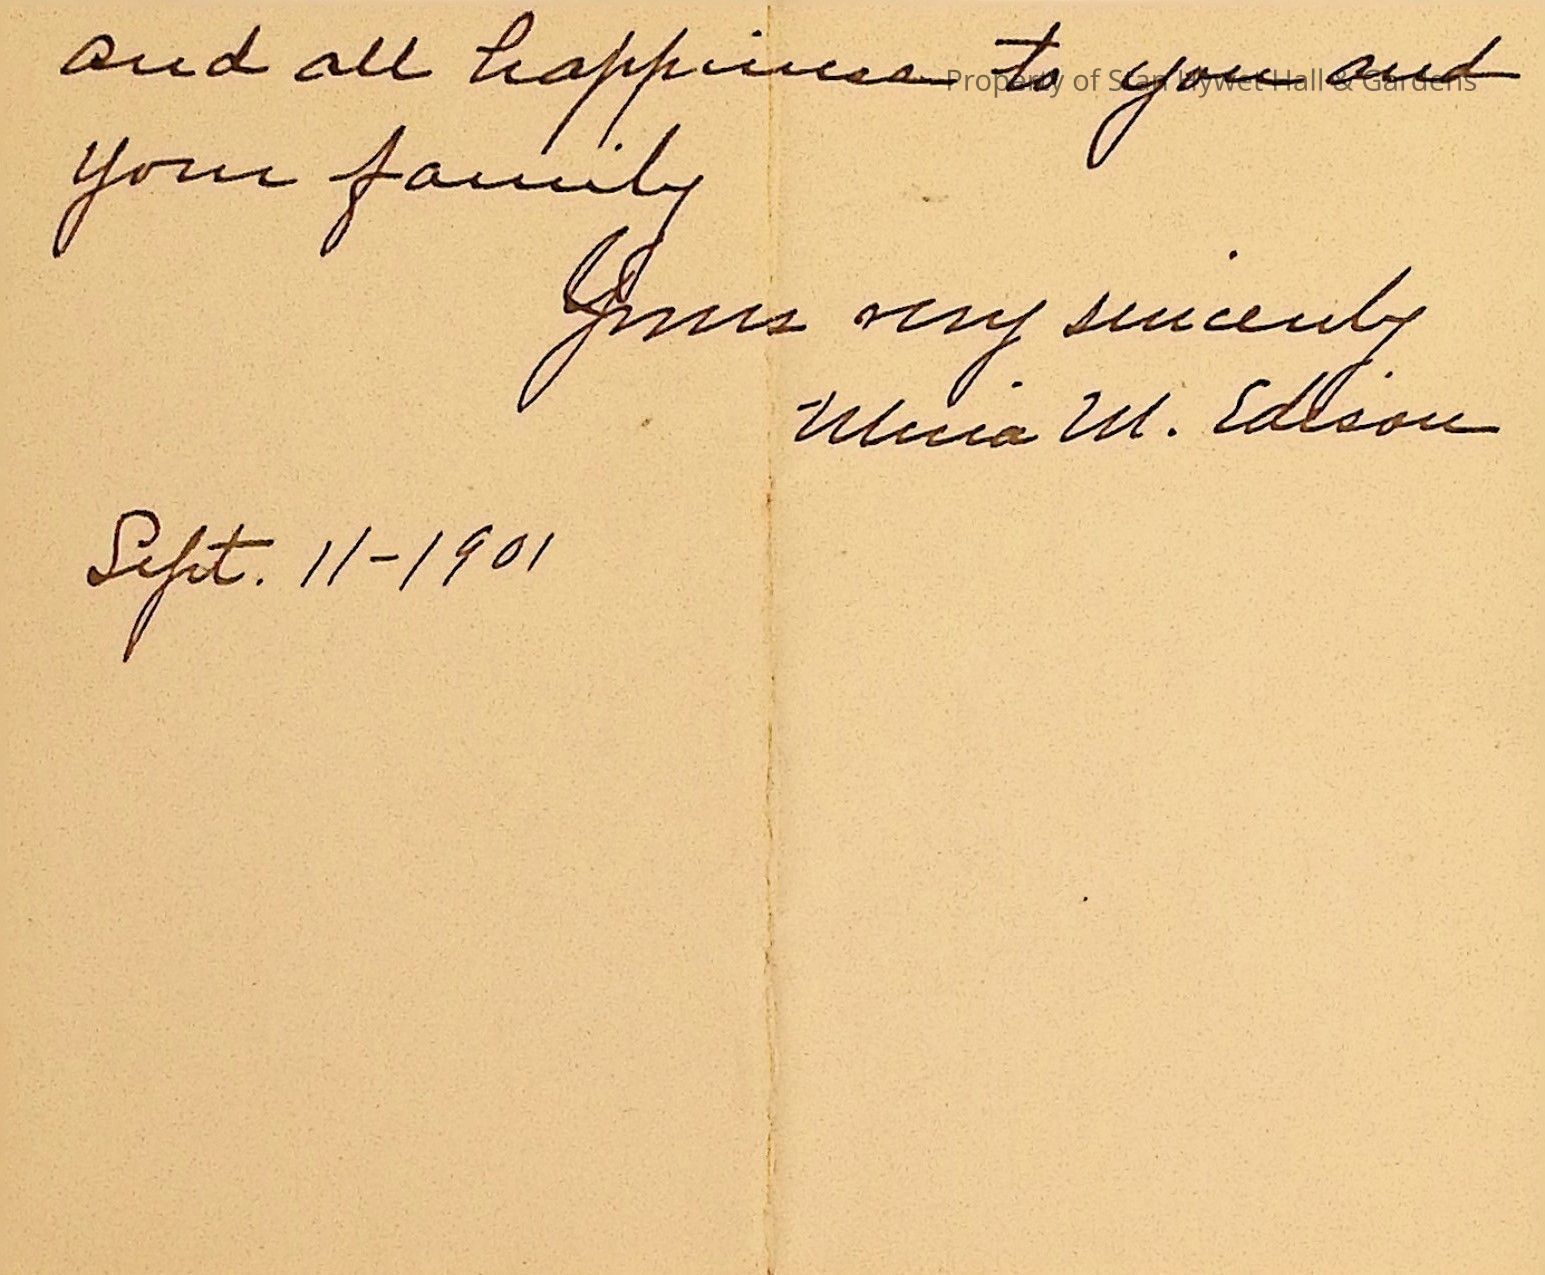 and all happiness to you and
Property of Stan Hywet Hall & Gardens
your family
Yours very sincerely
Mina M. Edison
Sept. 11-1901